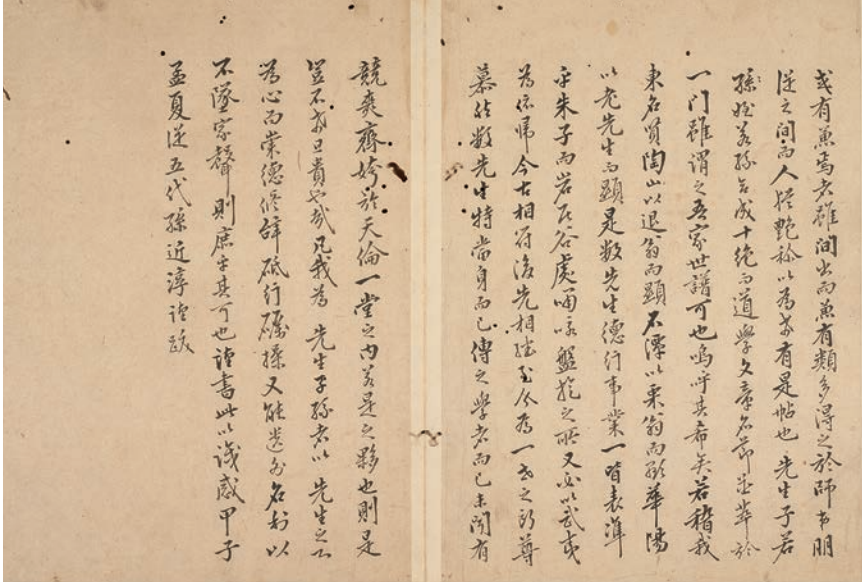 或有兼焉者雖間出而兼有類多得之於師友朋
從之間而人猶艶稱以為者有是帖也先生子若
孫姪若孫合成十絶而道學文章名節並華於
一門雖謂之吾家世譜可也嗚呼其希矣若稽我
東名賢陶山以退翁而顯石潭以栗翁而顯華陽
以老先生而顯是數先生德行事業一皆表準
乎朱子而岩居谷處嘯咏盤旋之所又必以武夷
為依歸今古相符後先相望至今為一世之所尊
慕然數先生特當身而已傳之學者而已未聞有
競爽齊姱於天倫一堂之內若是之夥也則是
豈不者且貴也哉凡我為先生子孫者以先生之心
為心而崇德修辭砥行礪操又能遺外名利以
不墜家聲則庶乎其可也謹書此以識感甲子
孟夏從五代孫近淳謹跋